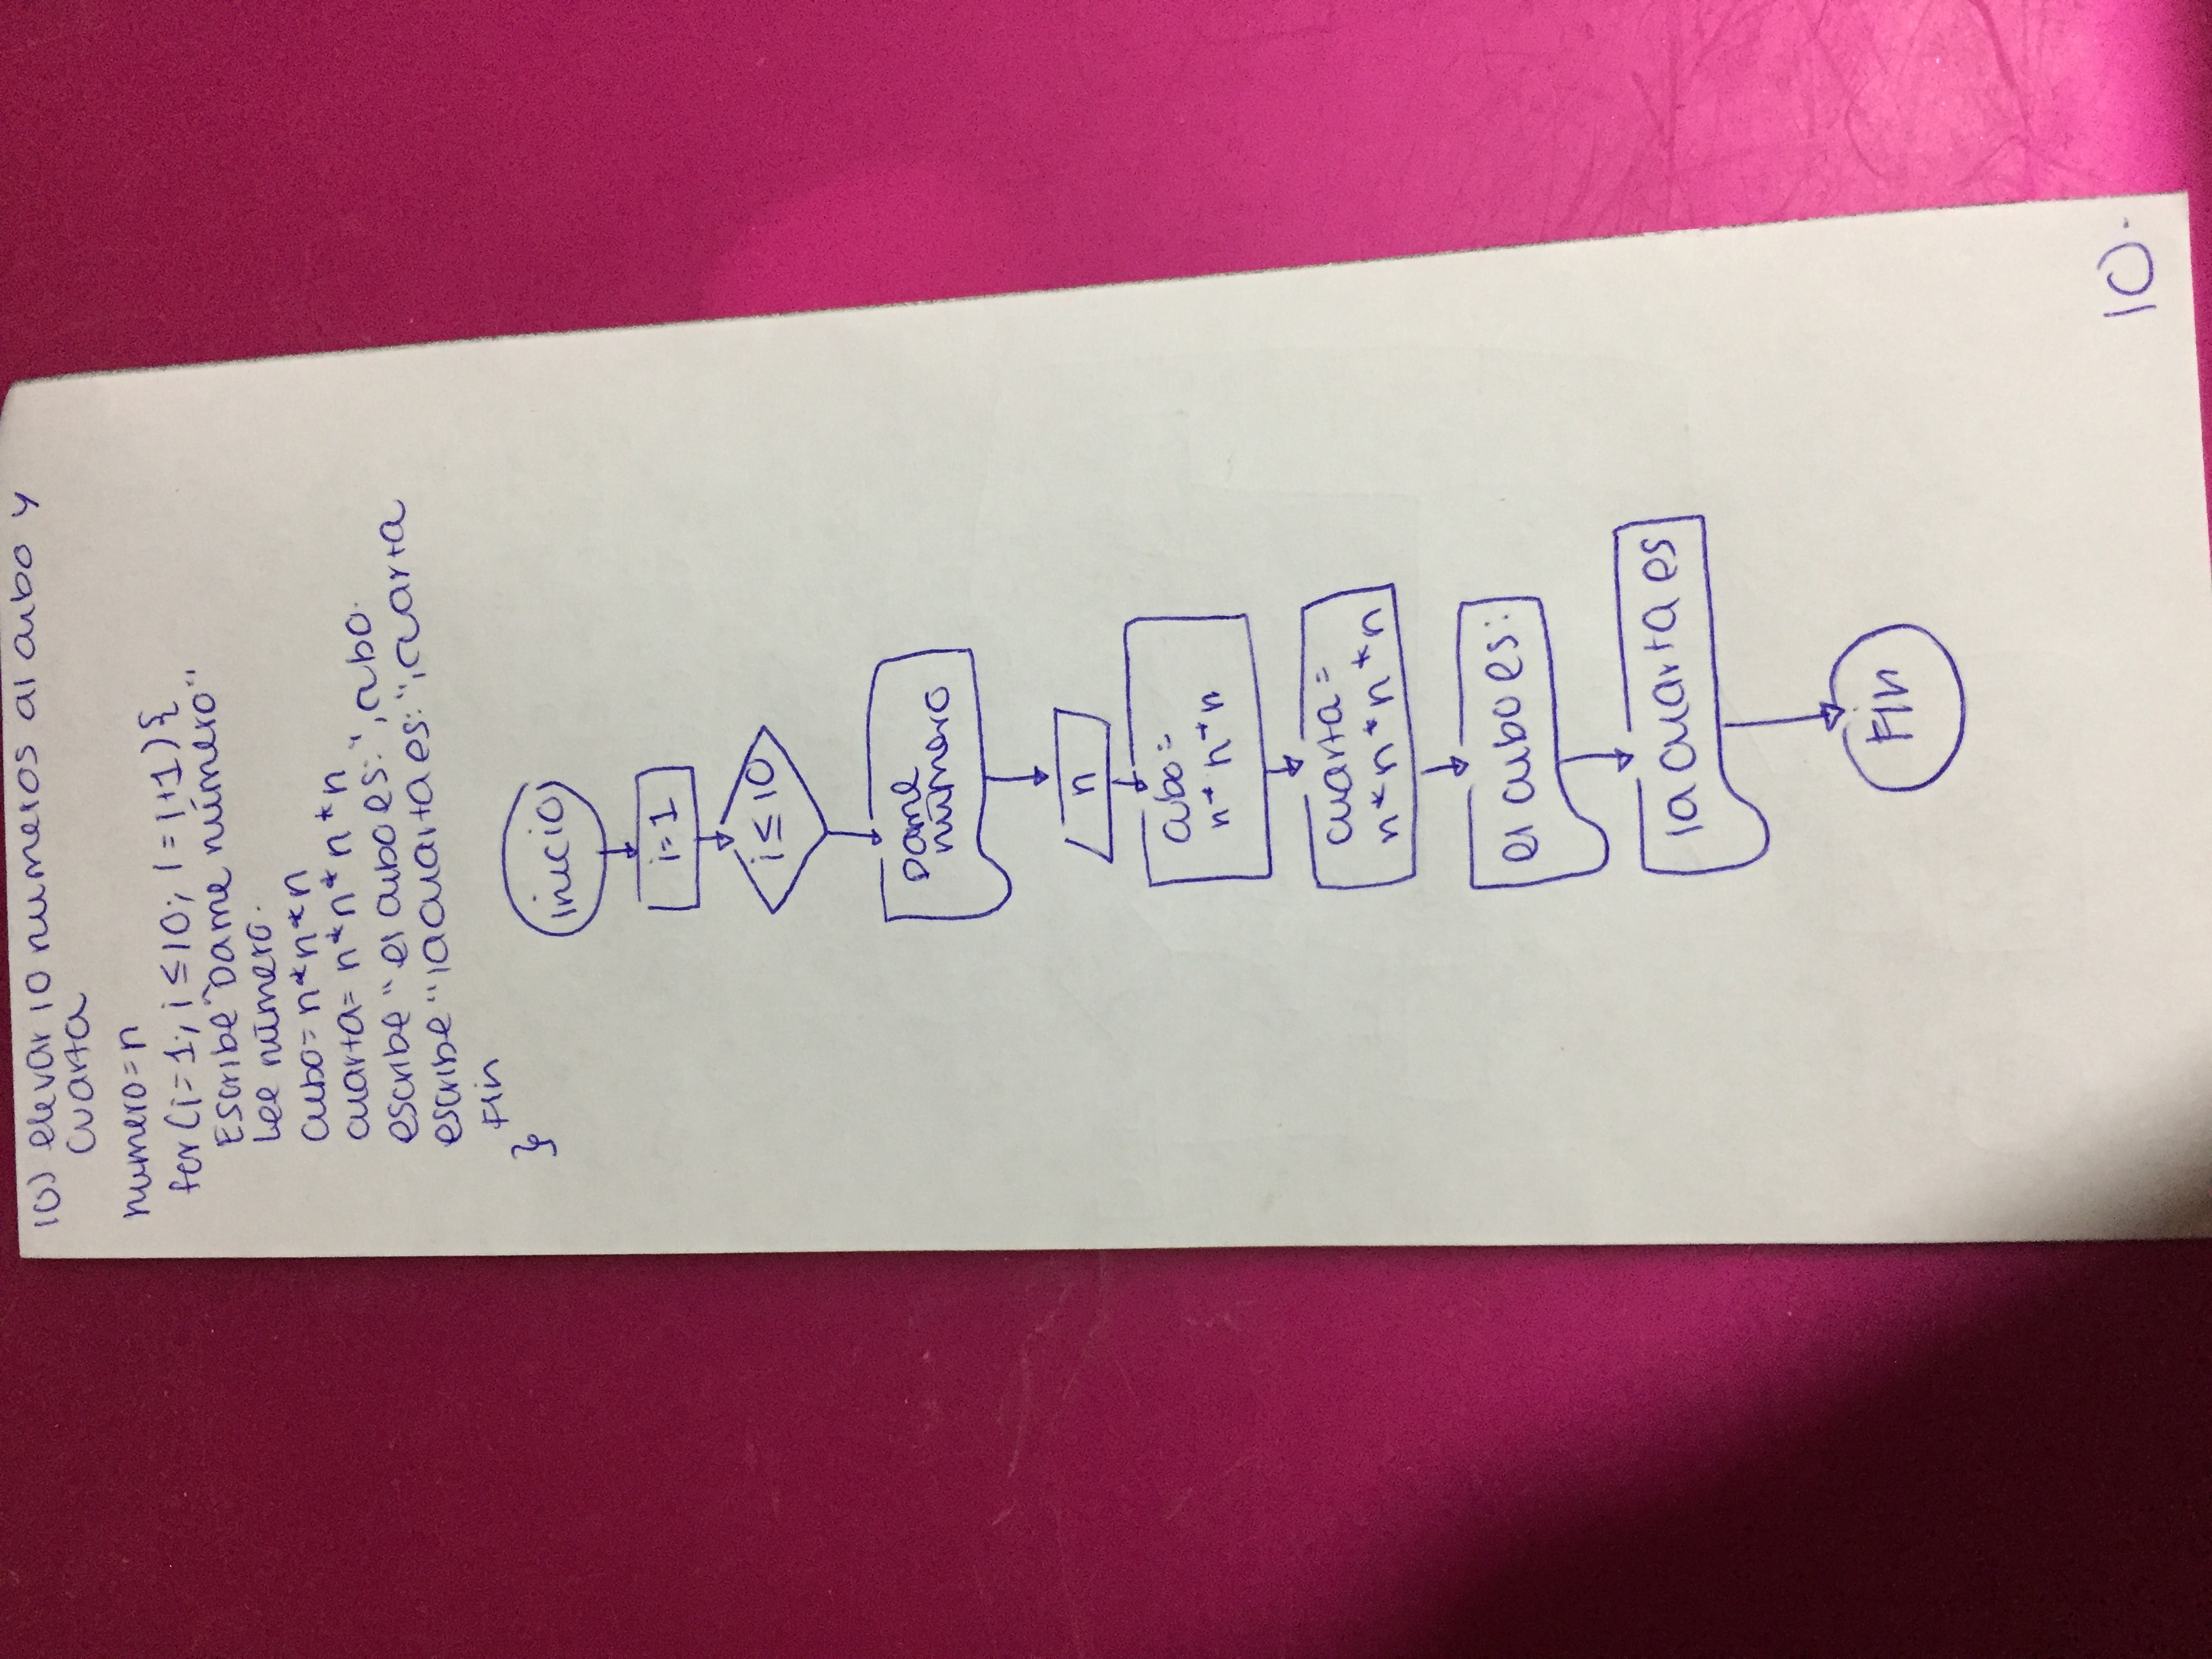 10) elevar 10 numeros al cubo y
cuarta
numero=n
for(i=1; i≤10; i=i+1){
Escribe "Dame número"
Lee número.
cubo= n*n*n
cuarta= n*n*n*n
escribe "el cubo es:", cubo.
escribe "la cuarta es:", cuarta
Fin
}
inicio
i=1
i≤10
Dame
número
n
cubo=
n*n*n
cuarta=
n*n*n*n
el cubo es:
la cuarta es
Fin
10.